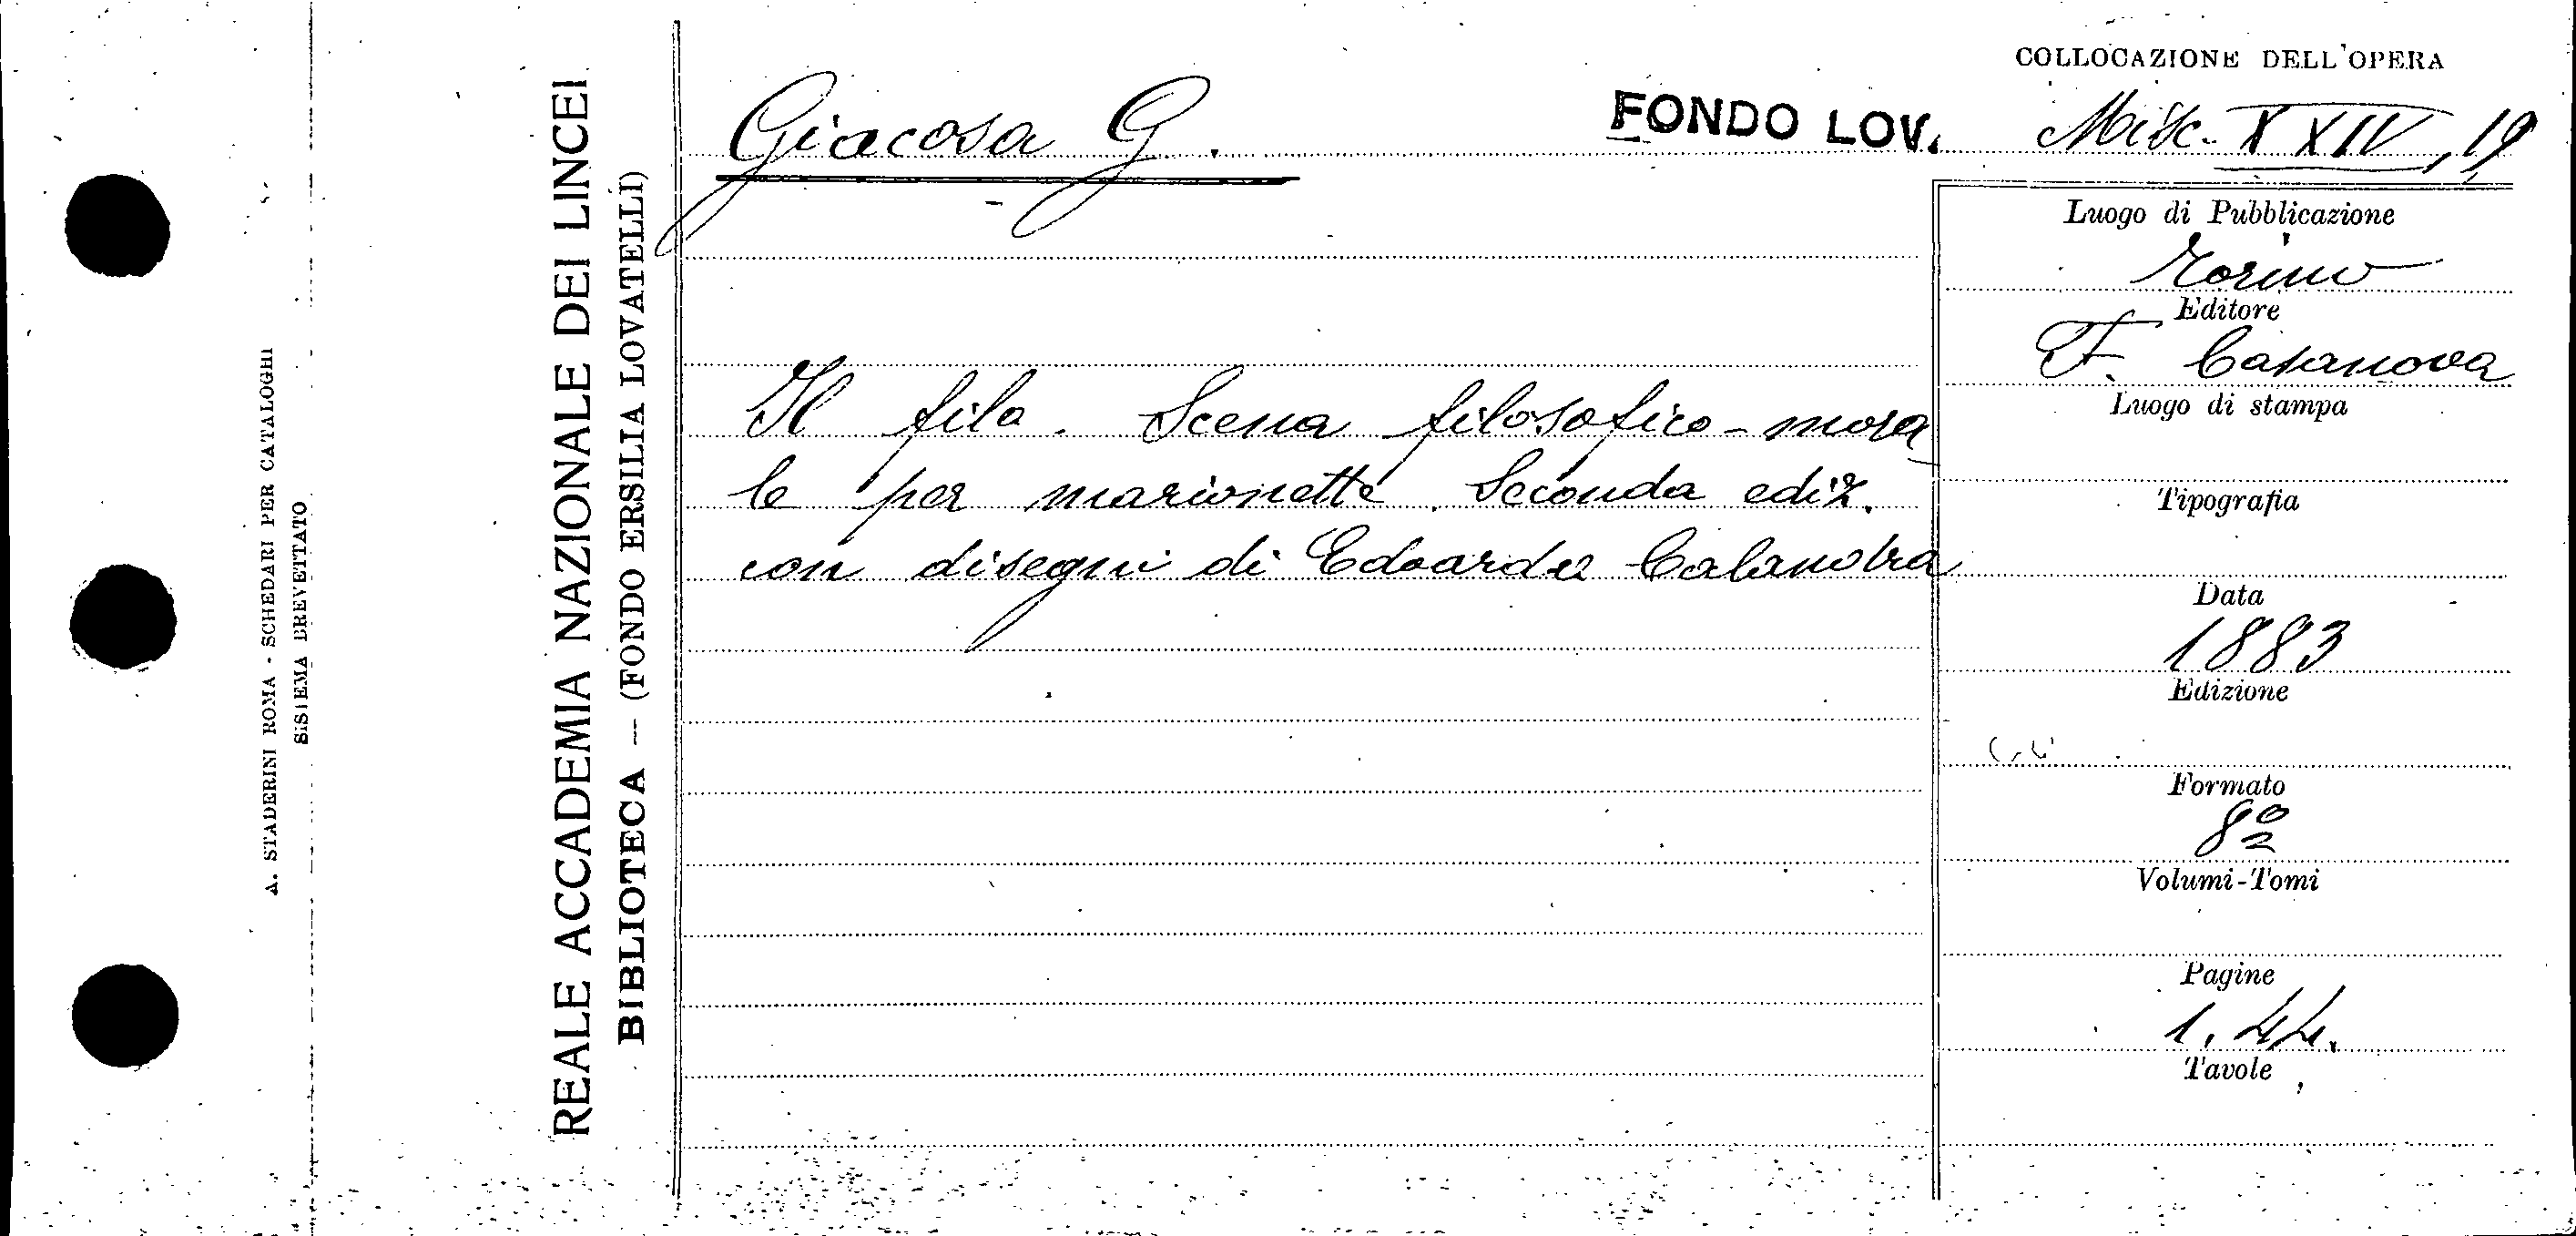 COLLOCAZIONE DELL'OPERA
Giacosa G.
FONDO LOV. Misc. XXIV, 19
Il filo. Scena filosofico-mora
le per marionette. Seconda ediz.
con disegni di Edoardo Calandra
Luogo di Pubblicazione
Torino
Editore
F. Casanova
Luogo di stampa
Tipografia
Data
1883
Edizione
Formato
8º
Volumi-Tomi
Pagine
1.44.
Tavole
REALE ACCADEMIA NAZIONALE DEI LINCEI
BIBLIOTECA — (FONDO ERSILIA LOVATELLI)
A. STADERINI ROMA - SCHEDARI PER CATALOGHI
SISTEMA BREVETTATO